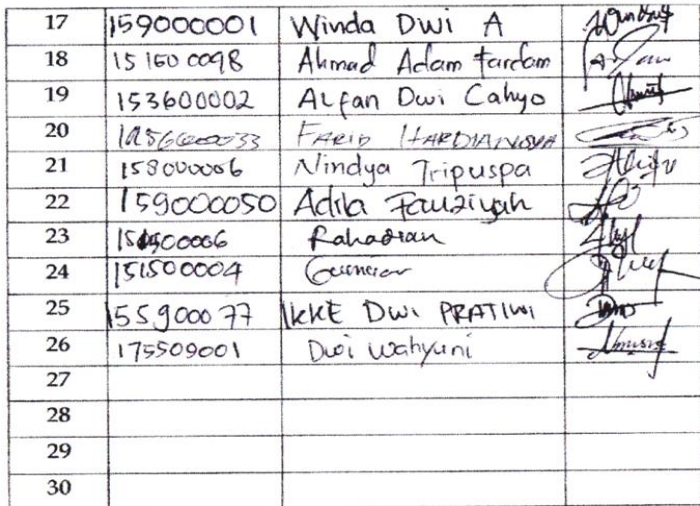 17 159000001 Winda Dwi A
18 151600098 Ahmad Adam Fardam
19 153600002 ALfan Dwi Cahyo
20 FARID HARDIANSYA
21 158000006 Nindya Tripuspa
22 159000050 Adila Fauziyah
23 Rahadian
24 151500004
25 155900077 IKKE Dwi PRATIWI
26 175509001 Dwi Wahyuni
27
28
29
30